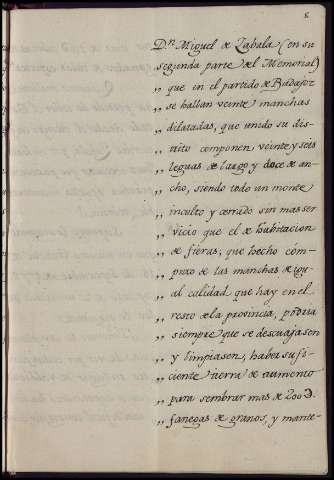 8
Dn. Miguel de Zabala (en su
segunda parte del Memorial)
„ que en el partido de Badajoz
„ se hallan veinte manchas
„ dilatadas, que unido su dis-
„ trito componen veinte y seis
„ leguas de largo y doce de an-
„ cho, siendo todo un monte
„ inculto y cerrado sin mas ser
„ vicio que el de habitacion
„ de fieras, que hecho cóm-
„ puto de las manchas de igu-
„ al calidad que hay en el
„ resto de la provincia, podria
„ siempre que se descuajasen
„ y limpiasen, haber sufi-
„ ciente tierra de aumento
„ para sembrar mas de 200 D.
„ fanegas de granos, y mante-